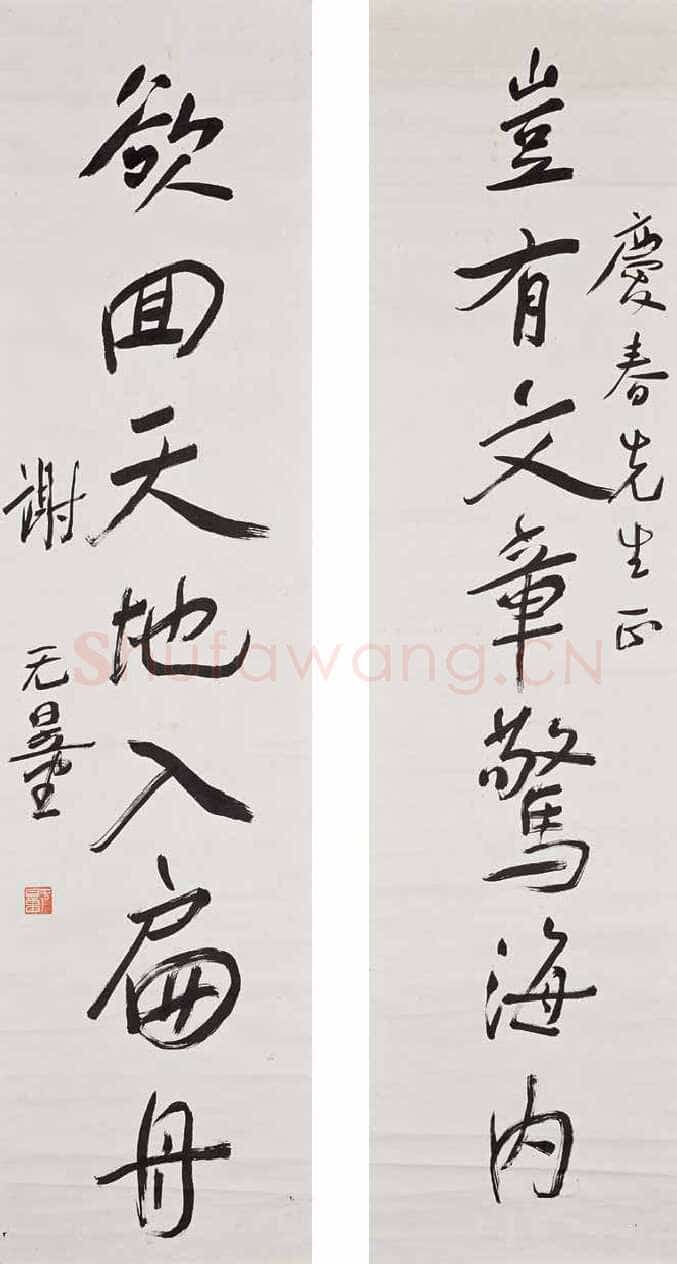 慶春先生正
豈有文章驚海内
欲回天地入扁舟
謝无量
Shufawang.CN